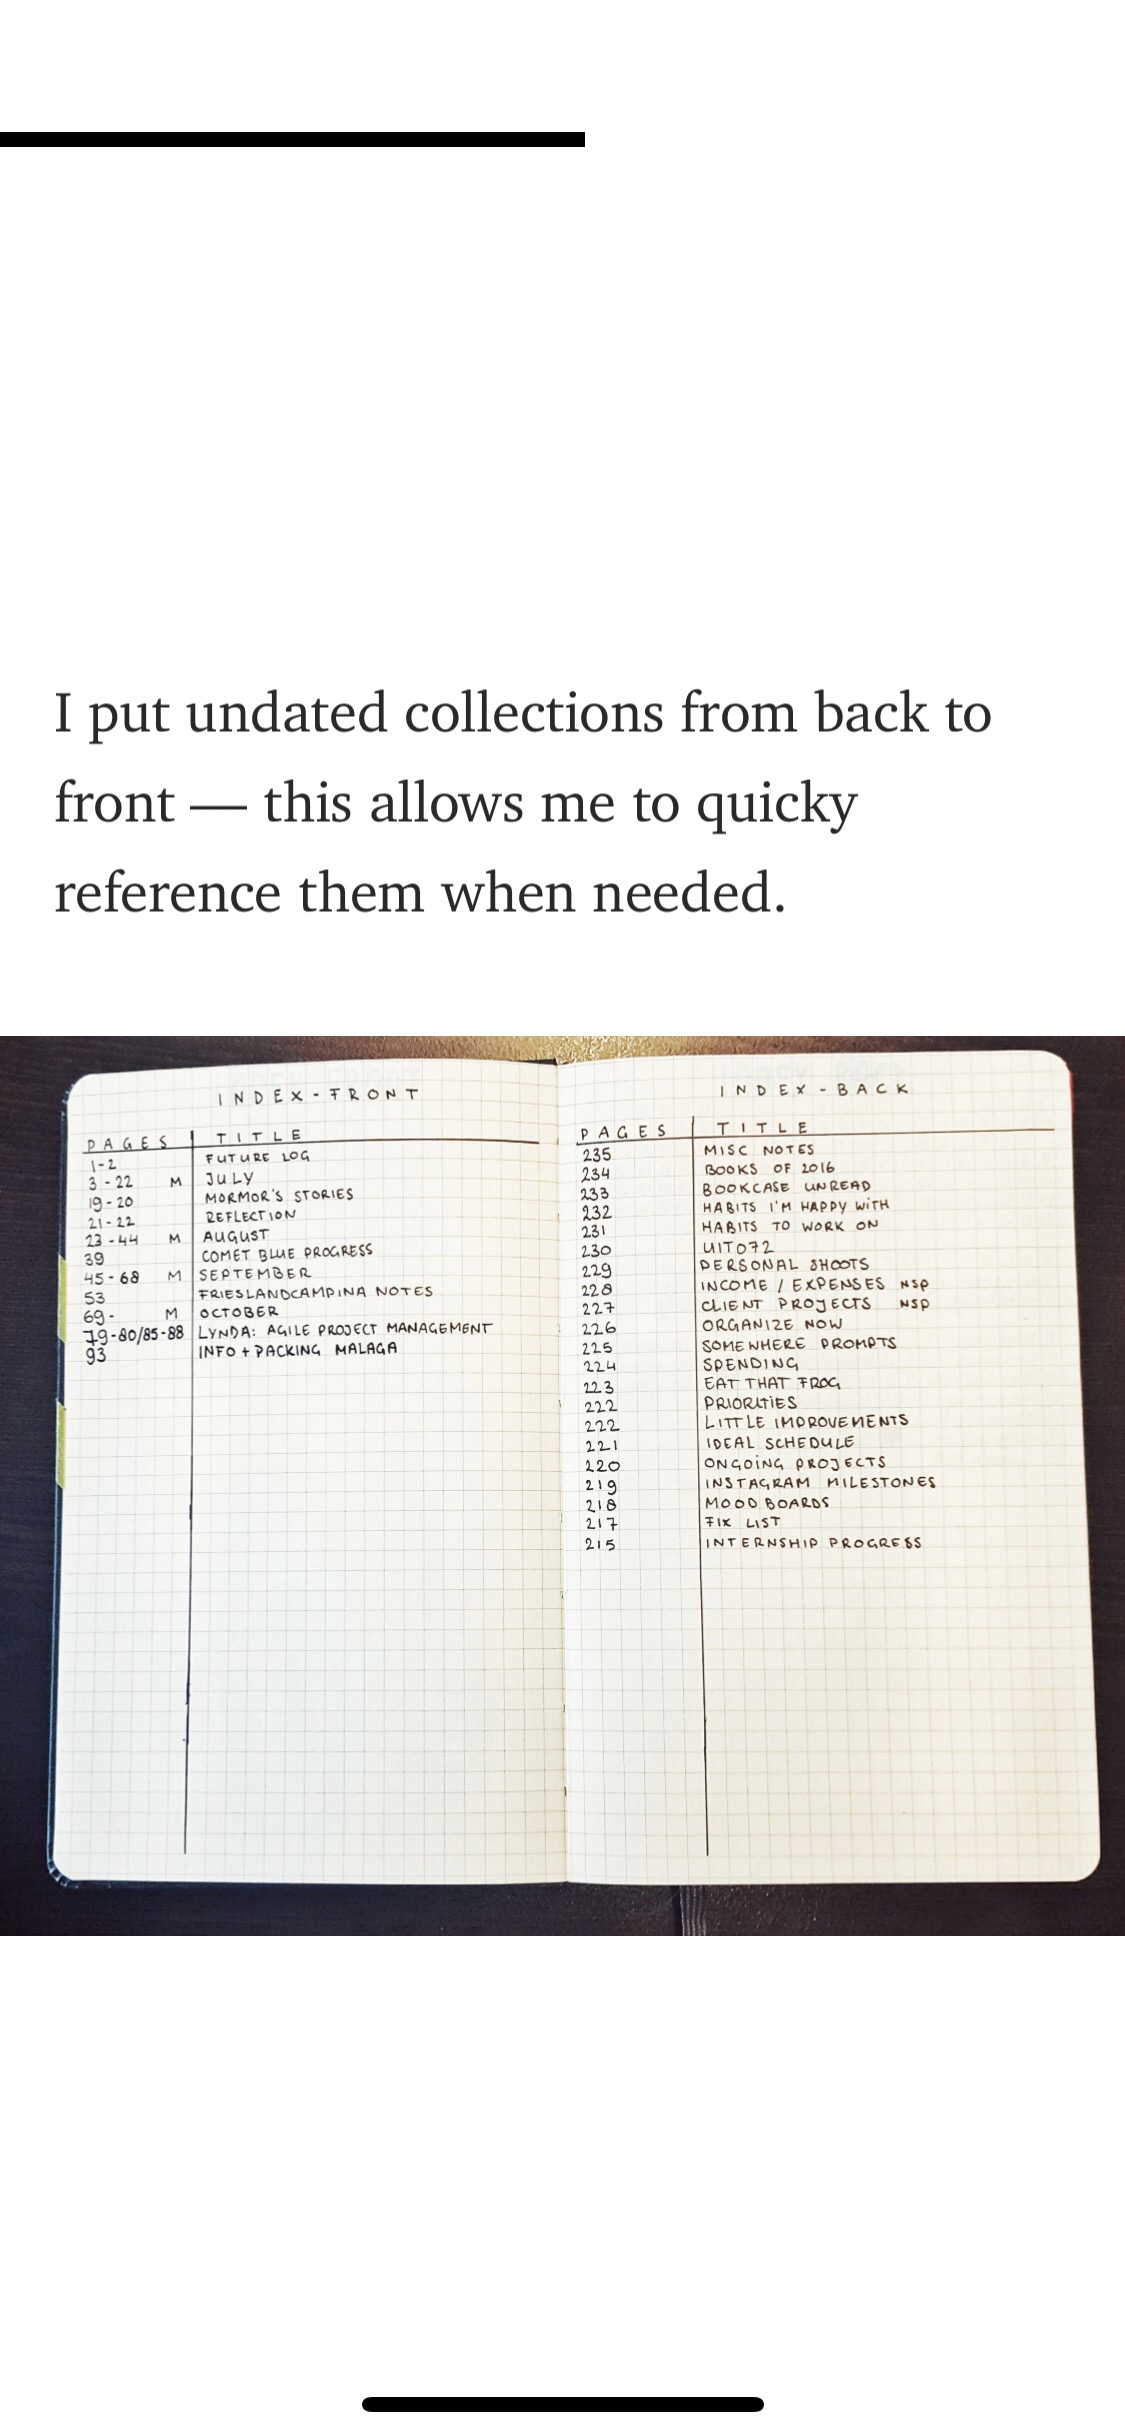 I put undated collections from back to
front — this allows me to quicky
reference them when needed.
INDEX-FRONT
PAGES TITLE
1-2 FUTURE LOG
3-22 M JULY
19-20 MORMOR'S STORIES
21-22 REFLECTION
23-44 M AUGUST
39 COMET BLUE PROGRESS
45-68 M SEPTEMBER
53 FRIESLANDCAMPINA NOTES
69- M OCTOBER
79-80/85-88 LYNDA: AGILE PROJECT MANAGEMENT
93 INFO + PACKING MALAGA
INDEX-BACK
PAGES TITLE
235 MISC NOTES
234 BOOKS OF 2016
233 BOOKCASE UNREAD
232 HABITS I'M HAPPY WITH
231 HABITS TO WORK ON
230 UIT072
229 PERSONAL SHOOTS
228 INCOME / EXPENSES NSP
227 CLIENT PROJECTS NSP
226 ORGANIZE NOW
225 SOMEWHERE PROMPTS
224 SPENDING
223 EAT THAT FROG
222 PRIORITIES
222 LITTLE IMPROVEMENTS
221 IDEAL SCHEDULE
220 ONGOING PROJECTS
219 INSTAGRAM MILESTONES
218 MOOD BOARDS
217 FIX LIST
215 INTERNSHIP PROGRESS